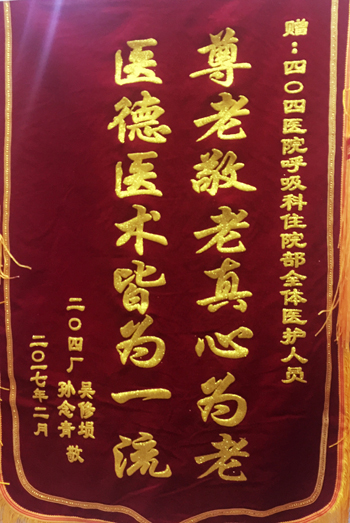 赠：四〇四医院呼吸科住院部全体医护人员
尊老敬老真心为老
医德医术皆为一流
二〇四厂 吴修埙
孙念青 敬
二〇一七年二月